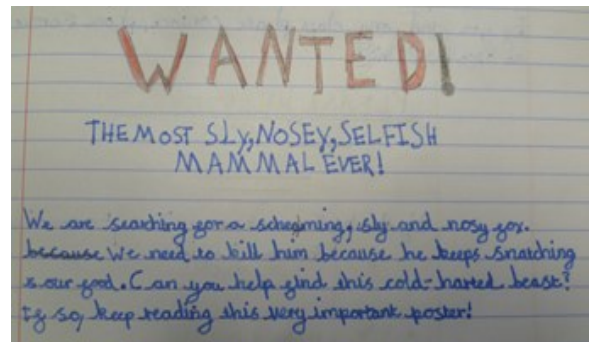 WANTED!
THE MOST SLY, NOSEY, SELFISH
MAMMAL EVER!
We are searching for a scheaming, sly and nosy fox.
because We need to kill him because he keeps snatching
our food. Can you help find this cold-harted beast?
If so, keep reading this very important poster!